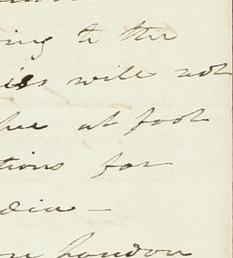 ing to the
ies will not
at foot
tions for
dia —
on London